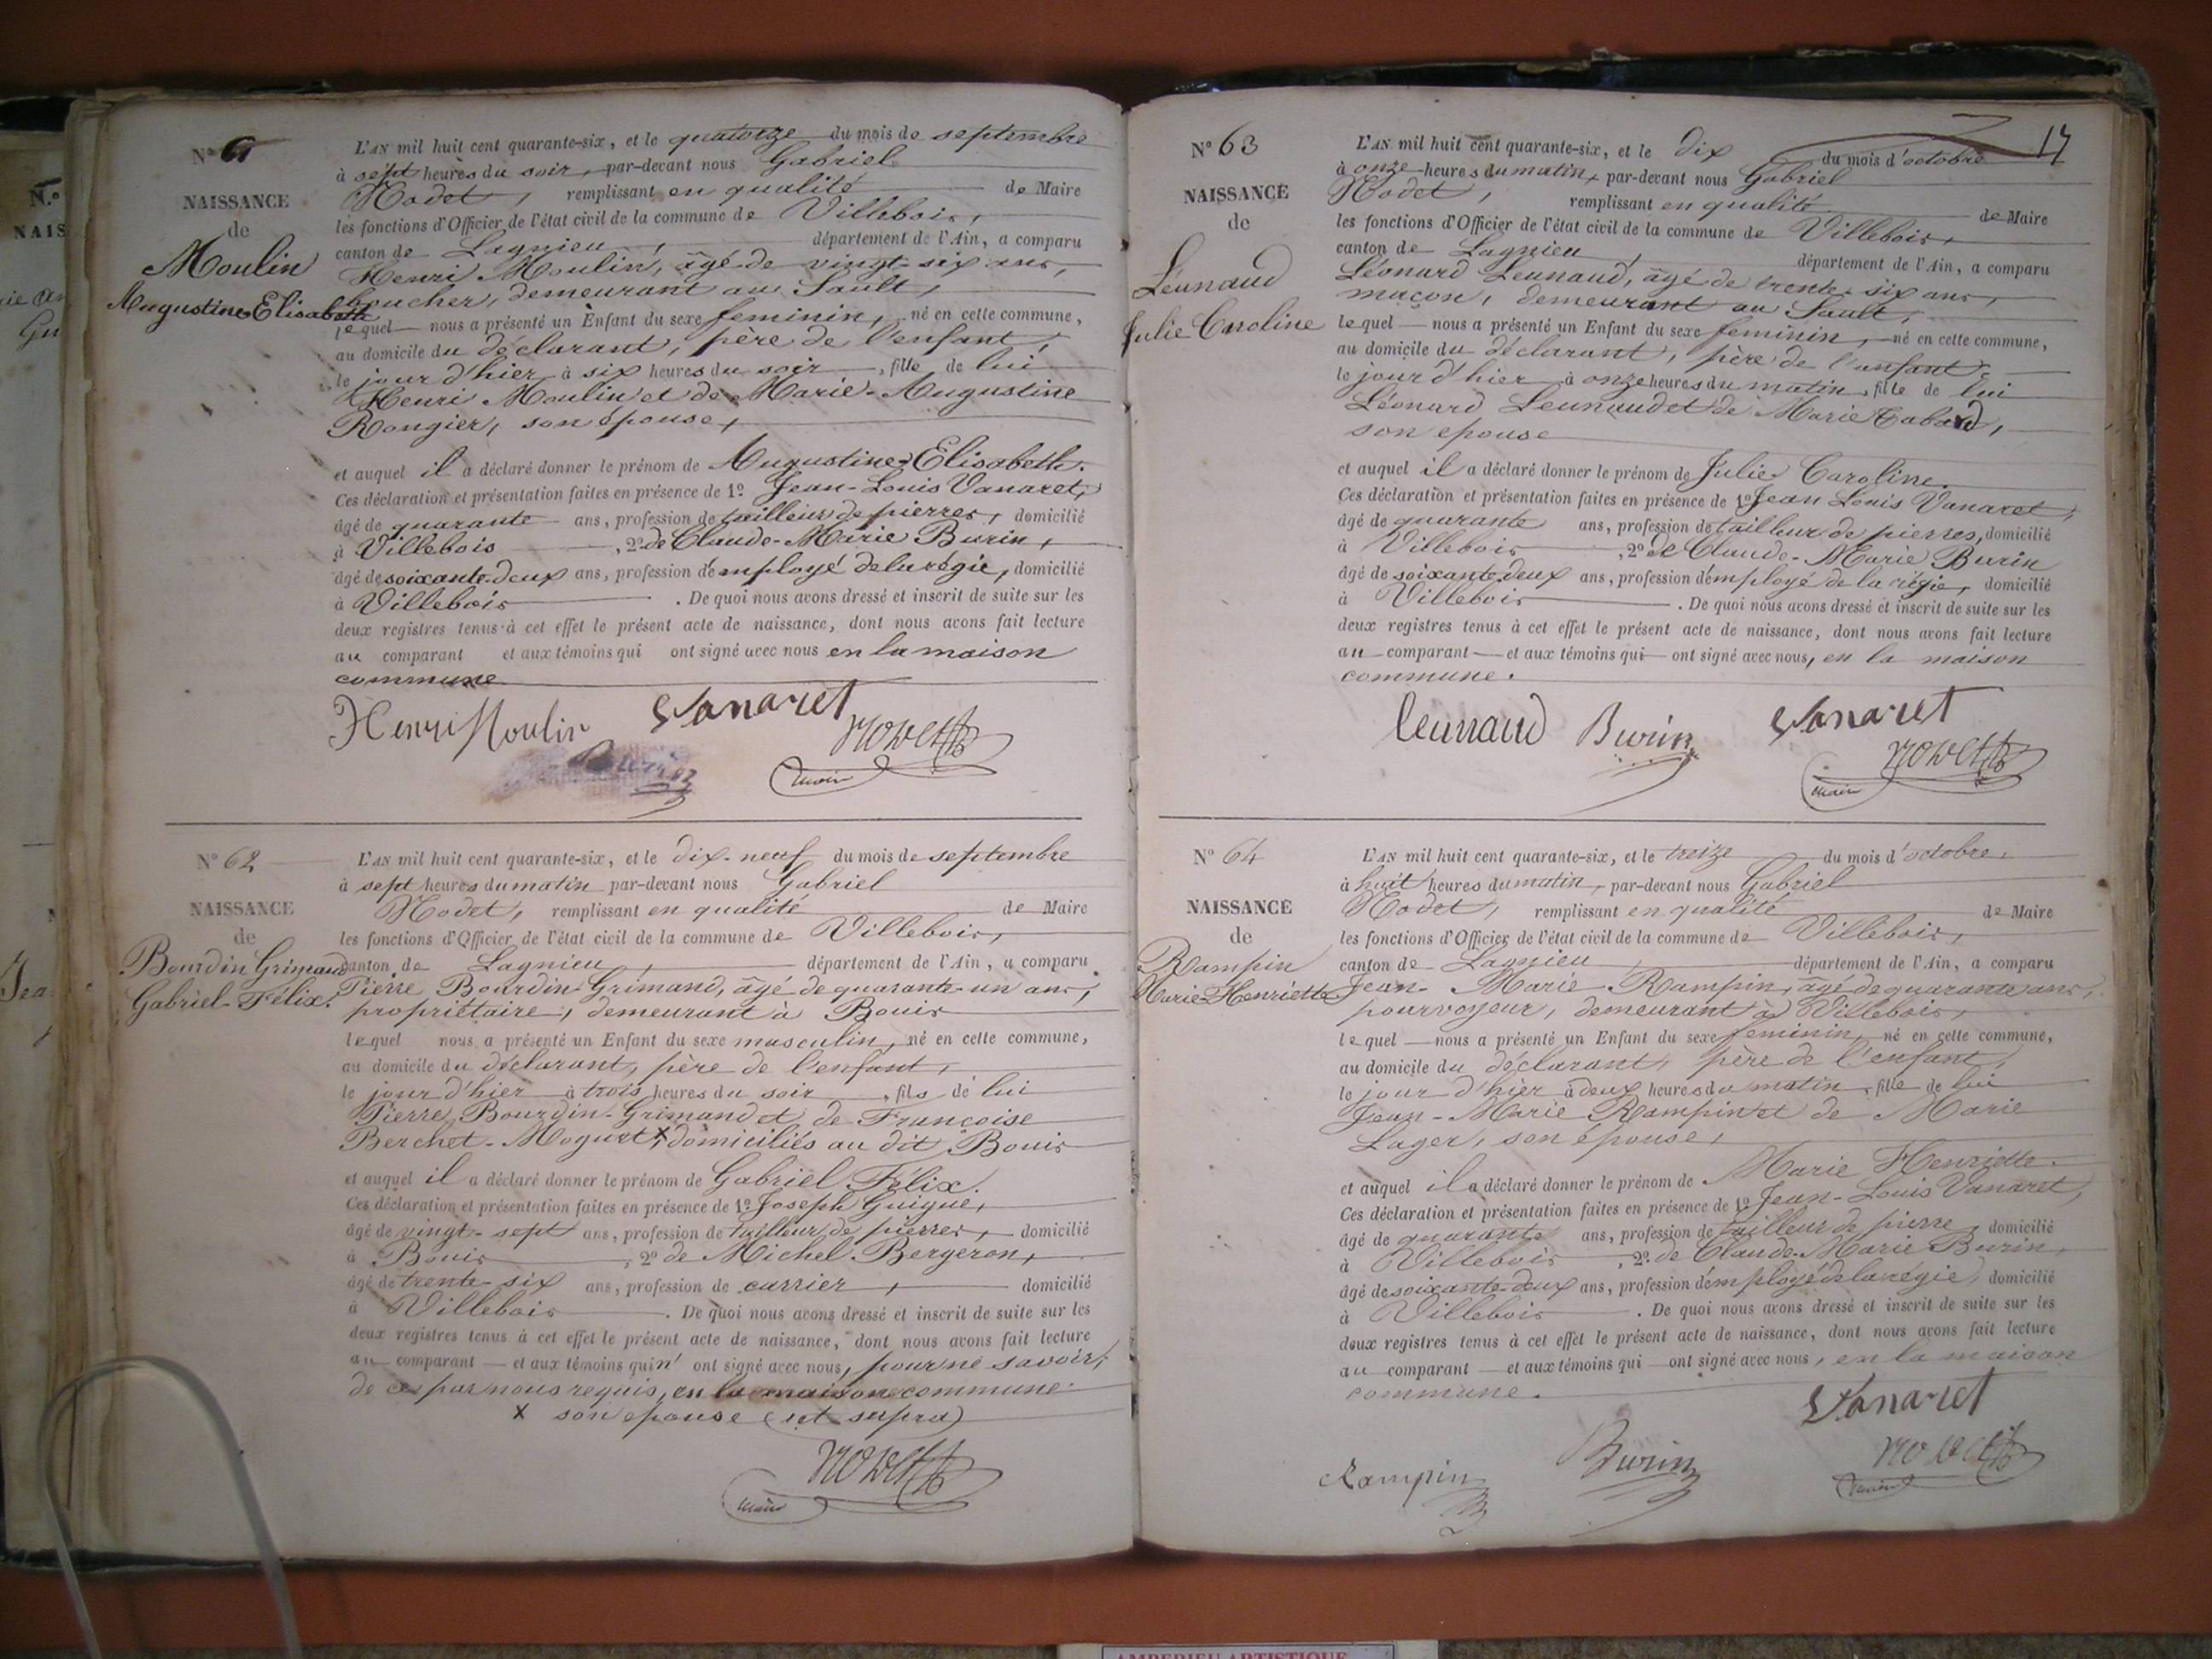 N° 61
NAISSANCE
de
Moulin
Augustine Elisabeth
L'AN mil huit cent quarante-six, et le quatorze du mois de septembre
à sept heures du soir, par-devant nous Gabriel
Nodet, remplissant en qualité de Maire
les fonctions d'Officier de l'état civil de la commune de Villebois,
canton de Lagnieu, département de l'Ain, a comparu
Henri Moulin, âgé de vingt-six ans,
boucher, demeurant au Sault,
lequel nous a présenté un Enfant du sexe feminin, né en cette commune,
au domicile du déclarant, père de l'enfant,
le jour d'hier à six heures du soir, fille de lui
Henri Moulin et de Marie-Augustine
Rongier, son épouse,
et auquel il a déclaré donner le prénom de Augustine Elisabeth.
Ces déclaration et présentation faites en présence de 1° Jean-Louis Vanaret,
âgé de quarante ans, profession de tailleur de pierres, domicilié
à Villebois, 2° de Claude-Marie Burin,
âgé de soixante-deux ans, profession d'employé de la régie, domicilié
à Villebois. De quoi nous avons dressé et inscrit de suite sur les
deux registres tenus à cet effet le présent acte de naissance, dont nous avons fait lecture
au comparant et aux témoins qui ont signé avec nous en la maison
commune
Henri Moulin Vanaret Nodet
Burin maire
N° 62
NAISSANCE
de
Bourdin Grimaud
Gabriel-Félix.
L'AN mil huit cent quarante-six, et le dix-neuf du mois de septembre
à sept heures du matin par-devant nous Gabriel
Nodet, remplissant en qualité de Maire
les fonctions d'Officier de l'état civil de la commune de Villebois,
canton de Lagnieu, département de l'Ain, a comparu
Pierre Bourdin-Grimaud, âgé de quarante-un ans,
propriétaire, demeurant à Bouis
lequel nous a présenté un Enfant du sexe masculin, né en cette commune,
au domicile du déclarant, père de l'enfant,
le jour d'hier à trois heures du soir, fils de lui
Pierre Bourdin-Grimand et de Françoise
Berchet-Mogurt, X domiciliés au dit Bouis
et auquel il a déclaré donner le prénom de Gabriel Félix.
Ces déclaration et présentation faites en présence de 1° Joseph Guigue,
âgé de vingt-sept ans, profession de tailleur de pierres, domicilié
à Bouis, 2° de Michel Bergeron,
âgé de trente-six ans, profession de carrier, domicilié
à Villebois. De quoi nous avons dressé et inscrit de suite sur les
deux registres tenus à cet effet le présent acte de naissance, dont nous avons fait lecture
au comparant et aux témoins qui n'ont signé avec nous, pour ne savoir,
de ce par nous requis, en la maison commune.
X son epouse (ut supra)
Nodet
maire
17
N° 63
NAISSANCE
de
Léunaud
Julie Caroline
L'AN mil huit cent quarante-six, et le dix du mois d'octobre
à onze heures du matin, par-devant nous Gabriel
Nodet, remplissant en qualité de Maire
les fonctions d'Officier de l'état civil de la commune de Villebois,
canton de Lagnieu, département de l'Ain, a comparu
Léonard Leunaud, âgé de trente-six ans,
maçon, demeurant au Sault,
lequel nous a présenté un Enfant du sexe feminin, né en cette commune,
au domicile du déclarant, père de l'enfant,
le jour d'hier à onze heures du matin, fille de lui
Léonard Leunaud et de Marie Cabard,
son epouse
et auquel il a déclaré donner le prénom de Julie Caroline.
Ces déclaration et présentation faites en présence de 1° Jean Louis Vanaret,
âgé de quarante ans, profession de tailleur de pierres, domicilié
à Villebois, 2° de Claude-Marie Burin
âgé de soixante-deux ans, profession d'employé de la régie, domicilié
à Villebois. De quoi nous avons dressé et inscrit de suite sur les
deux registres tenus à cet effet le présent acte de naissance, dont nous avons fait lecture
au comparant et aux témoins qui ont signé avec nous, en la maison
commune.
Leunaud Burin Vanaret
Nodet
maire
N° 64
NAISSANCE
de
Rampin
Marie-Henriette
L'AN mil huit cent quarante-six, et le treize du mois d'octobre,
à huit heures du matin, par-devant nous Gabriel
Nodet, remplissant en qualité de Maire
les fonctions d'Officier de l'état civil de la commune de Villebois,
canton de Lagnieu, département de l'Ain, a comparu
Jean-Marie Rampin, âgé de quarante ans,
pourvoyeur, demeurant à Villebois,
lequel nous a présenté un Enfant du sexe feminin, né en cette commune,
au domicile du déclarant, père de l'enfant,
le jour d'hier à deux heures du matin, fille de lui
Jean-Marie Rampin et de Marie
Lager, son épouse,
et auquel il a déclaré donner le prénom de Marie Henriette.
Ces déclaration et présentation faites en présence de 1° Jean-Louis Vanaret,
âgé de quarante ans, profession de tailleur de pierre, domicilié
à Villebois, 2° de Claude-Marie Burin,
âgé de soixante-deux ans, profession d'employé de la régie, domicilié
à Villebois. De quoi nous avons dressé et inscrit de suite sur les
deux registres tenus à cet effet le présent acte de naissance, dont nous avons fait lecture
au comparant et aux témoins qui ont signé avec nous, en la maison
commune.
Vanaret
Rampin Burin Nodet
maire